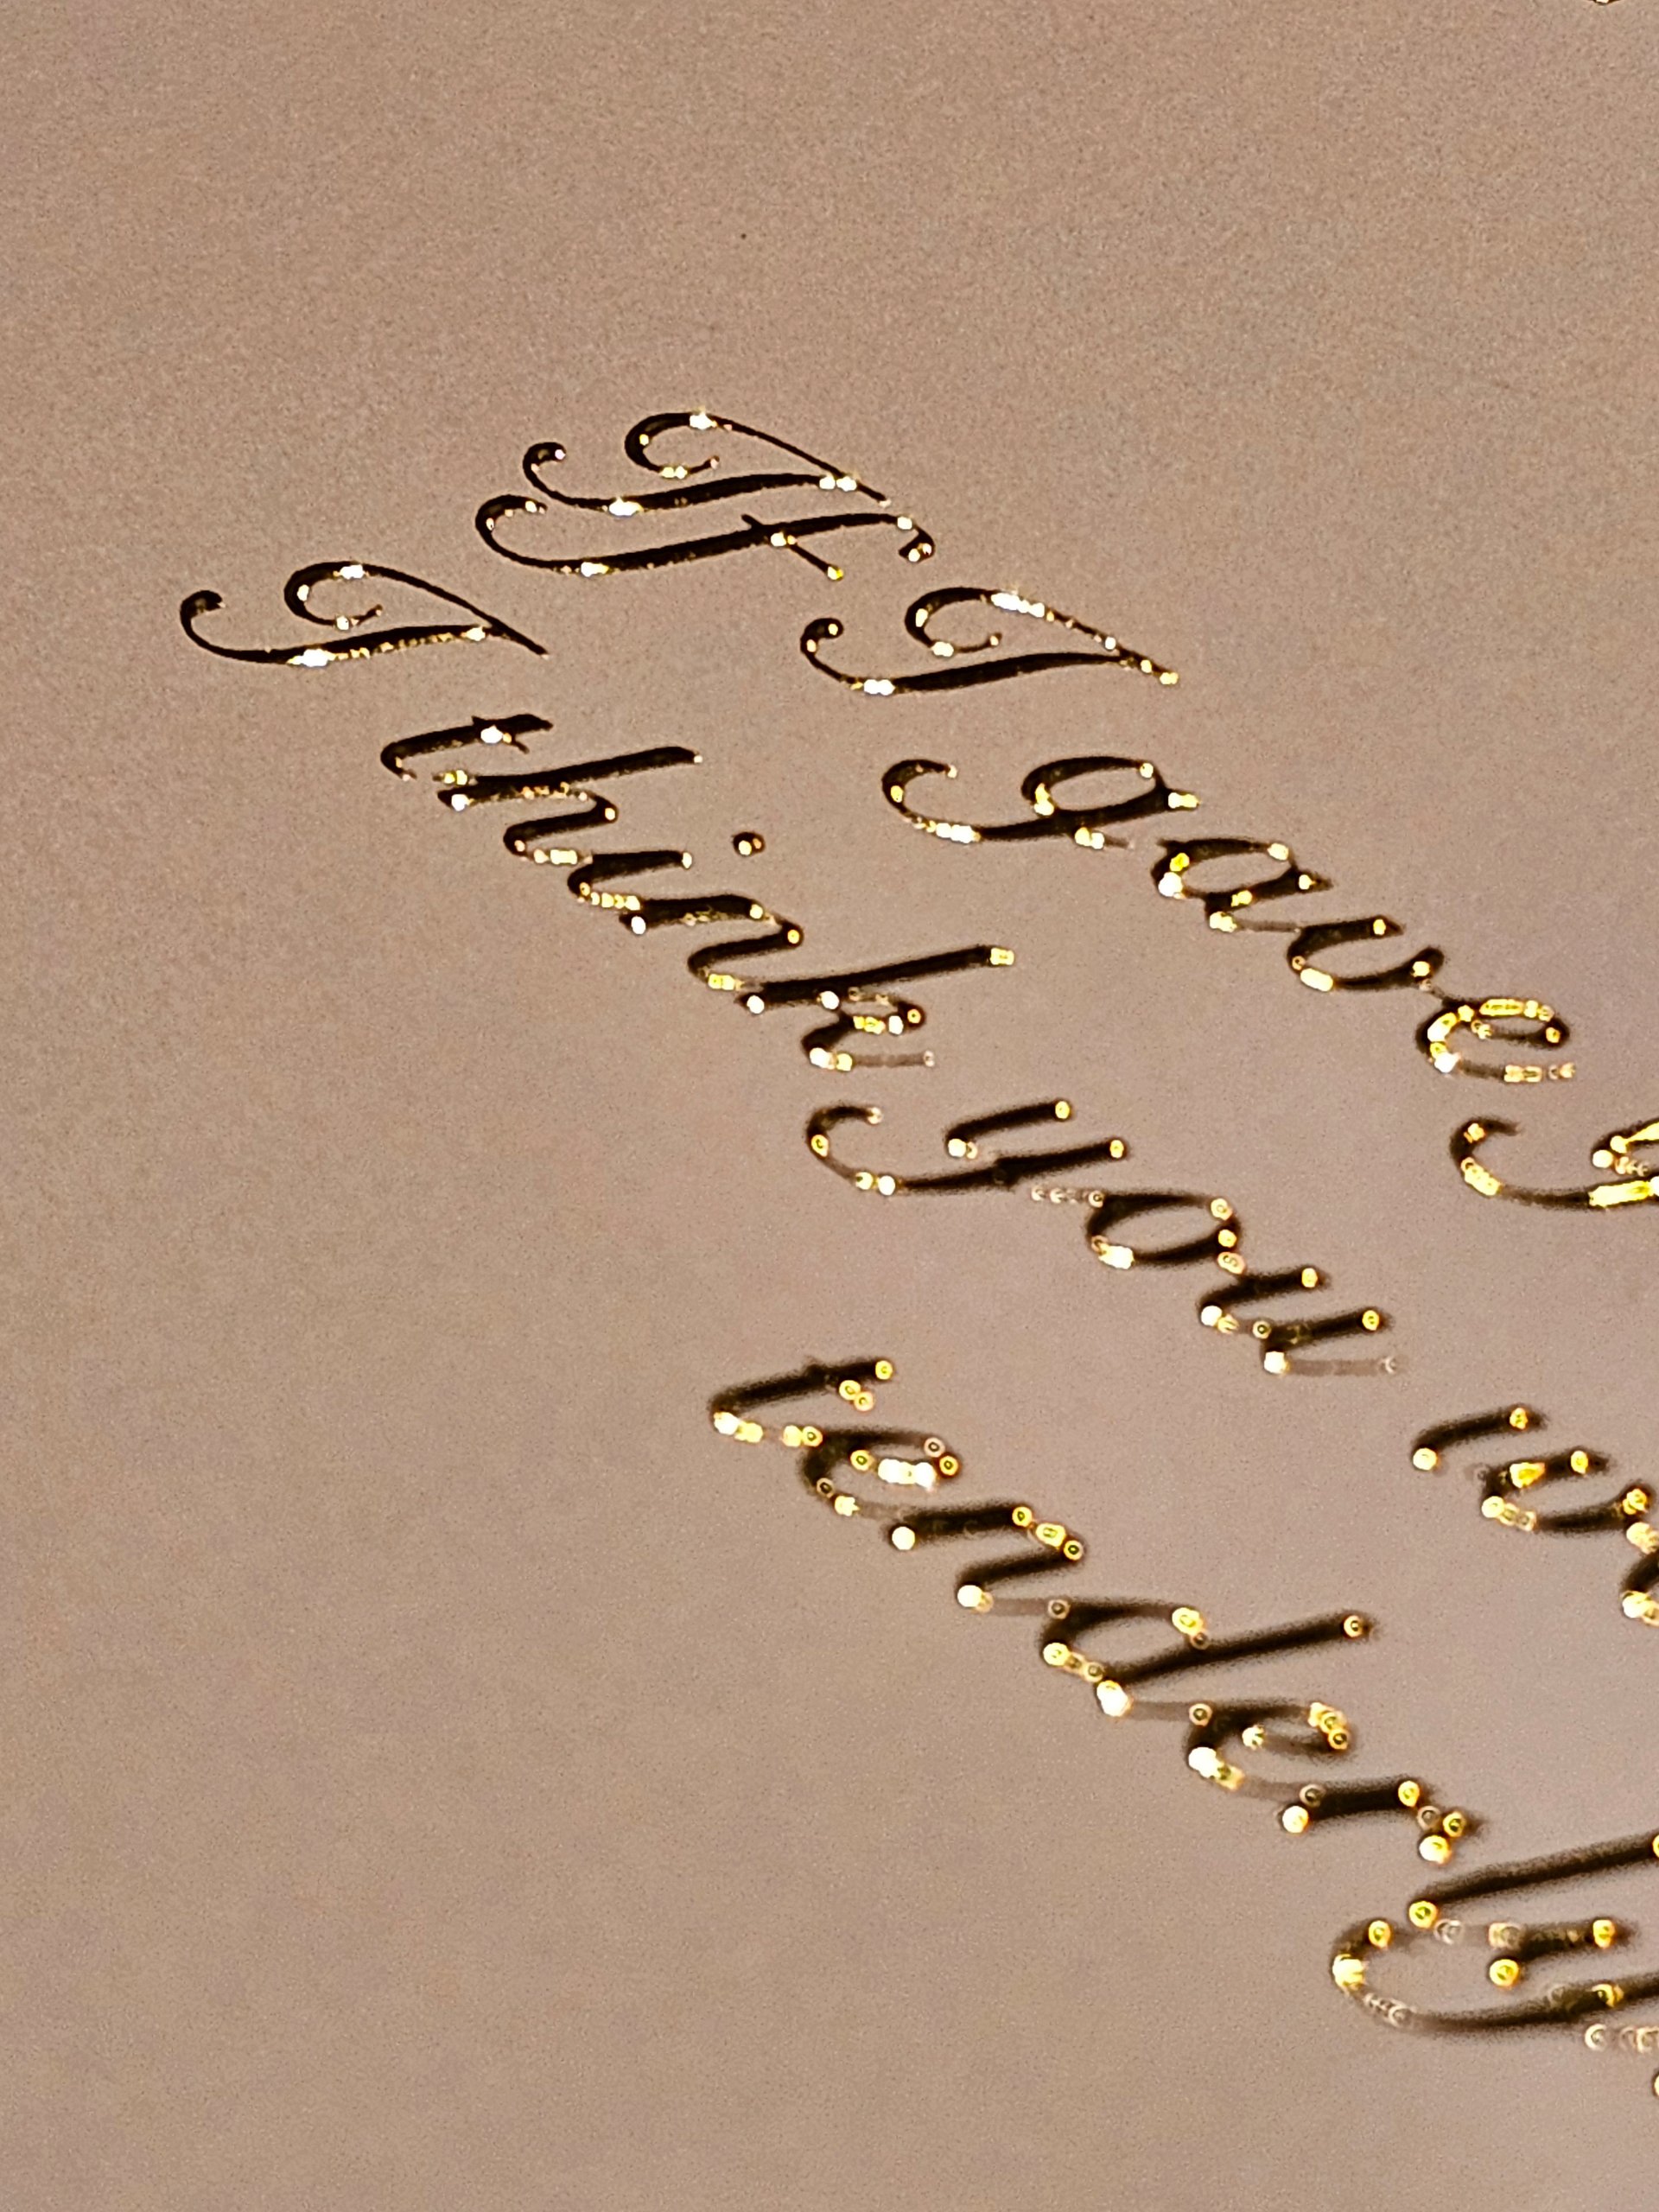 If I gave
I think you
tenderly